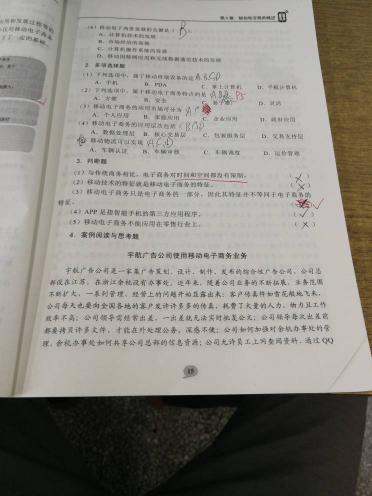 第1章 移动电子商务概述
(6) 移动电子商务发展的先驱是( B )。
A. 计算机技术的发展
B. 市场经济的发展
C. 计算机操作系统的发展
D. 移动互联网应用和无线数据通信技术的发展
2. 多项选择题
(1) 下列选项中,属于移动终端设备的是( ABCD )
A. 手机 B. PDA C. 掌上计算机 D. 平板计算机
(2) 下列选项中,属于移动电子商务特点的是
A. 方便 B. 安全 D. 灵活
(3) 移动电子商务的应用市场可分为
A. 个人应用 B. 家庭应用 C. 企业应用 D. 政府应用
(4) 移动电子商务的应用层次包括
A. 数据处理层 B. 核心交易层 C. 包装服务层 D. 交易支付层
移动物流可以实现( ACD )
A. 车辆认证 B. 车辆审核 C. 车辆调度 D. 运价管理
3. 判断题
(1) 与传统商务相比,电子商务对时间和空间都没有限制。 ( × )
(2) 移动技术的特征就是移动电子商务的特征。 ( × )
(3) 移动电子商务只是电子商务的一部分,因此其特征并不等同于电子商务的特征。 √
(4) APP 是指智能手机的第三方应用程序。 ( √ )
(5) 移动电子商务不能应用在零售行业上。 ( × )
4. 案例阅读与思考题
宇航广告公司使用移动电子商务业务
宇航广告公司是一家集广告策划、设计、制作、发布的综合性广告公司,公司总
部设在江苏,在浙江余杭设有办事处。近年来,随着公司业务的不断拓展,业务范围
不断扩大,一系列管理、经营上的问题开始显露出来:客户传真件如雪花般地飞来,
公司每天也要向全国各地的客户发许许多多的传真,耗费了大量的人力、物力且工作
效率不高;公司领导需经常出差,一出差就无法实时批复公文;公司领导每次出差前
都要拷贝许多文件,才能在外处理公务,深感不便;公司如何加强对余杭办事处的管
理,余杭办事处如何共享公司总部的信息资源;公司允许员工上网查阅资料,通过 QQ
15